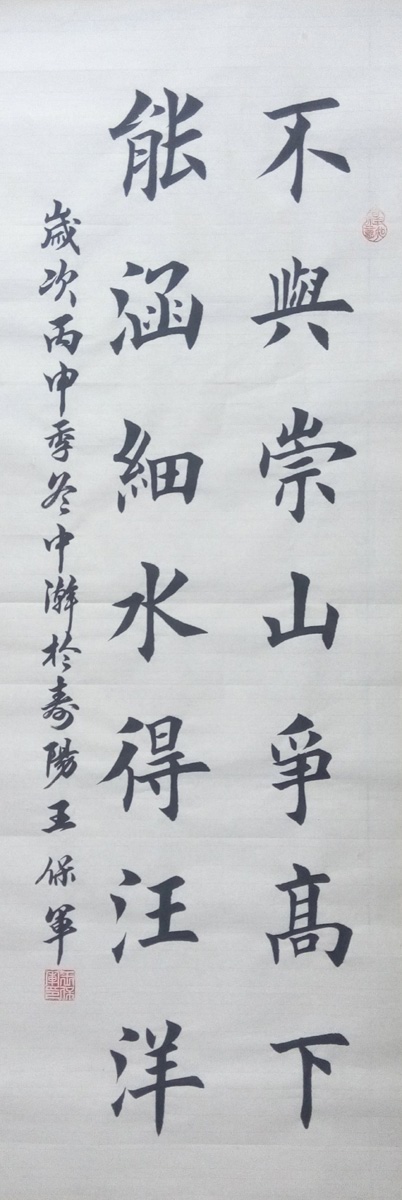 不與崇山爭高下
能涵細水得汪洋
歲次丙申季冬中澣於壽陽王保軍